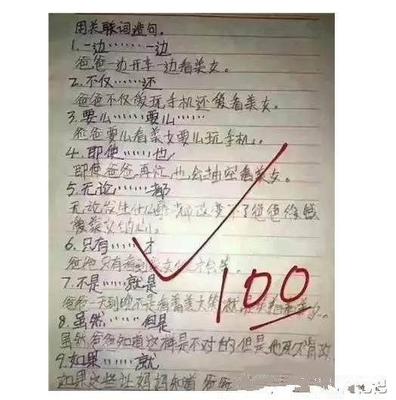 用关联词造句。
1.一边……一边
爸爸一边开车一边看美女。
2.不仅……还
爸爸不仅爱玩手机还爱看美女。
3.要么……要么……
爸爸要么看美女要么玩手机。
4.即使……也
即使爸爸再忙,也会抽空看美女。
5.无论……都
无论发生什么都改变不了爸爸
爱美女的心。
6.只有……才
爸爸只有看到美女
7.不是……就是
爸爸一天到晚不是看着美女
8.虽然……但是
虽然爸爸知道这样是不对的但是他
9.如果……就
如果这些让妈妈知道
100
笔记